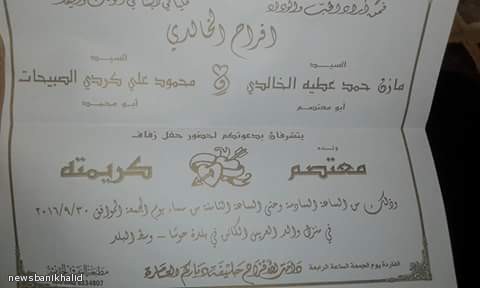 افراح الخالدي
السيد
مازن حمد عطيه الخالدي
أبو معتصم
السيد
محمود علي كردي الصبيحات
أبو محمد
يتشرفان بدعوتكم لحضور حفل زفاف
ولده
معتصم
كريمته
وذلك من الساعة السادسة وحتى الساعة الثامنة من مساء يوم الجمعة الموافق ٢٠١٦/٩/٣٠
في منزل والد العريس الكائن في بلدة حوشا - وسط البلد
الفاردة يوم الجمعة الساعة الرابعة
دامت الأفراح حليفة دياركم العامرة
newsbanikhalid